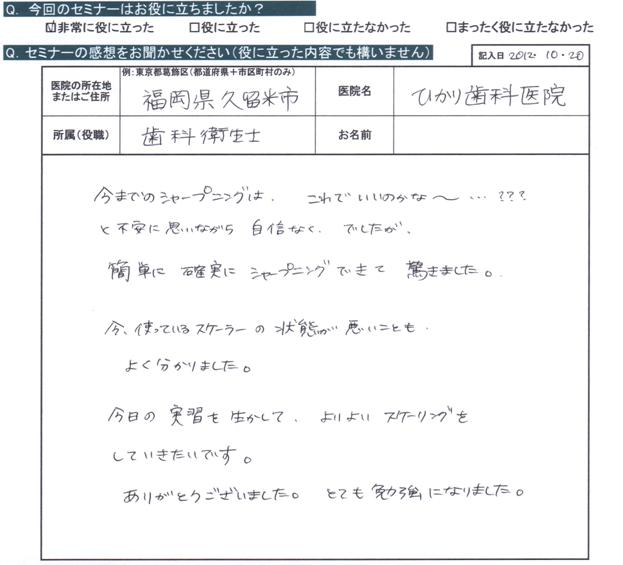 Q. 今回のセミナーはお役に立ちましたか?
☑非常に役に立った □役に立った □役に立たなかった □まったく役に立たなかった
Q. セミナーの感想をお聞かせください(役に立った内容でも構いません) 記入日 2012.10.20
例:東京都葛飾区(都道府県+市区町村のみ)
医院の所在地またはご住所 福岡県久留米市 医院名 ひかり歯科医院
所属(役職) 歯科衛生士 お名前
今までのシャープニングは、これでいいのかな〜…???
と不安に思いながら自信なく、でしたが、
簡単に確実にシャープニングできて驚きました。
今、使っているスケーラーの状態が悪いことも、
よく分かりました。
今日の実習を生かして、よりよいスケーリングを
していきたいです。
ありがとうございました。とても勉強になりました。